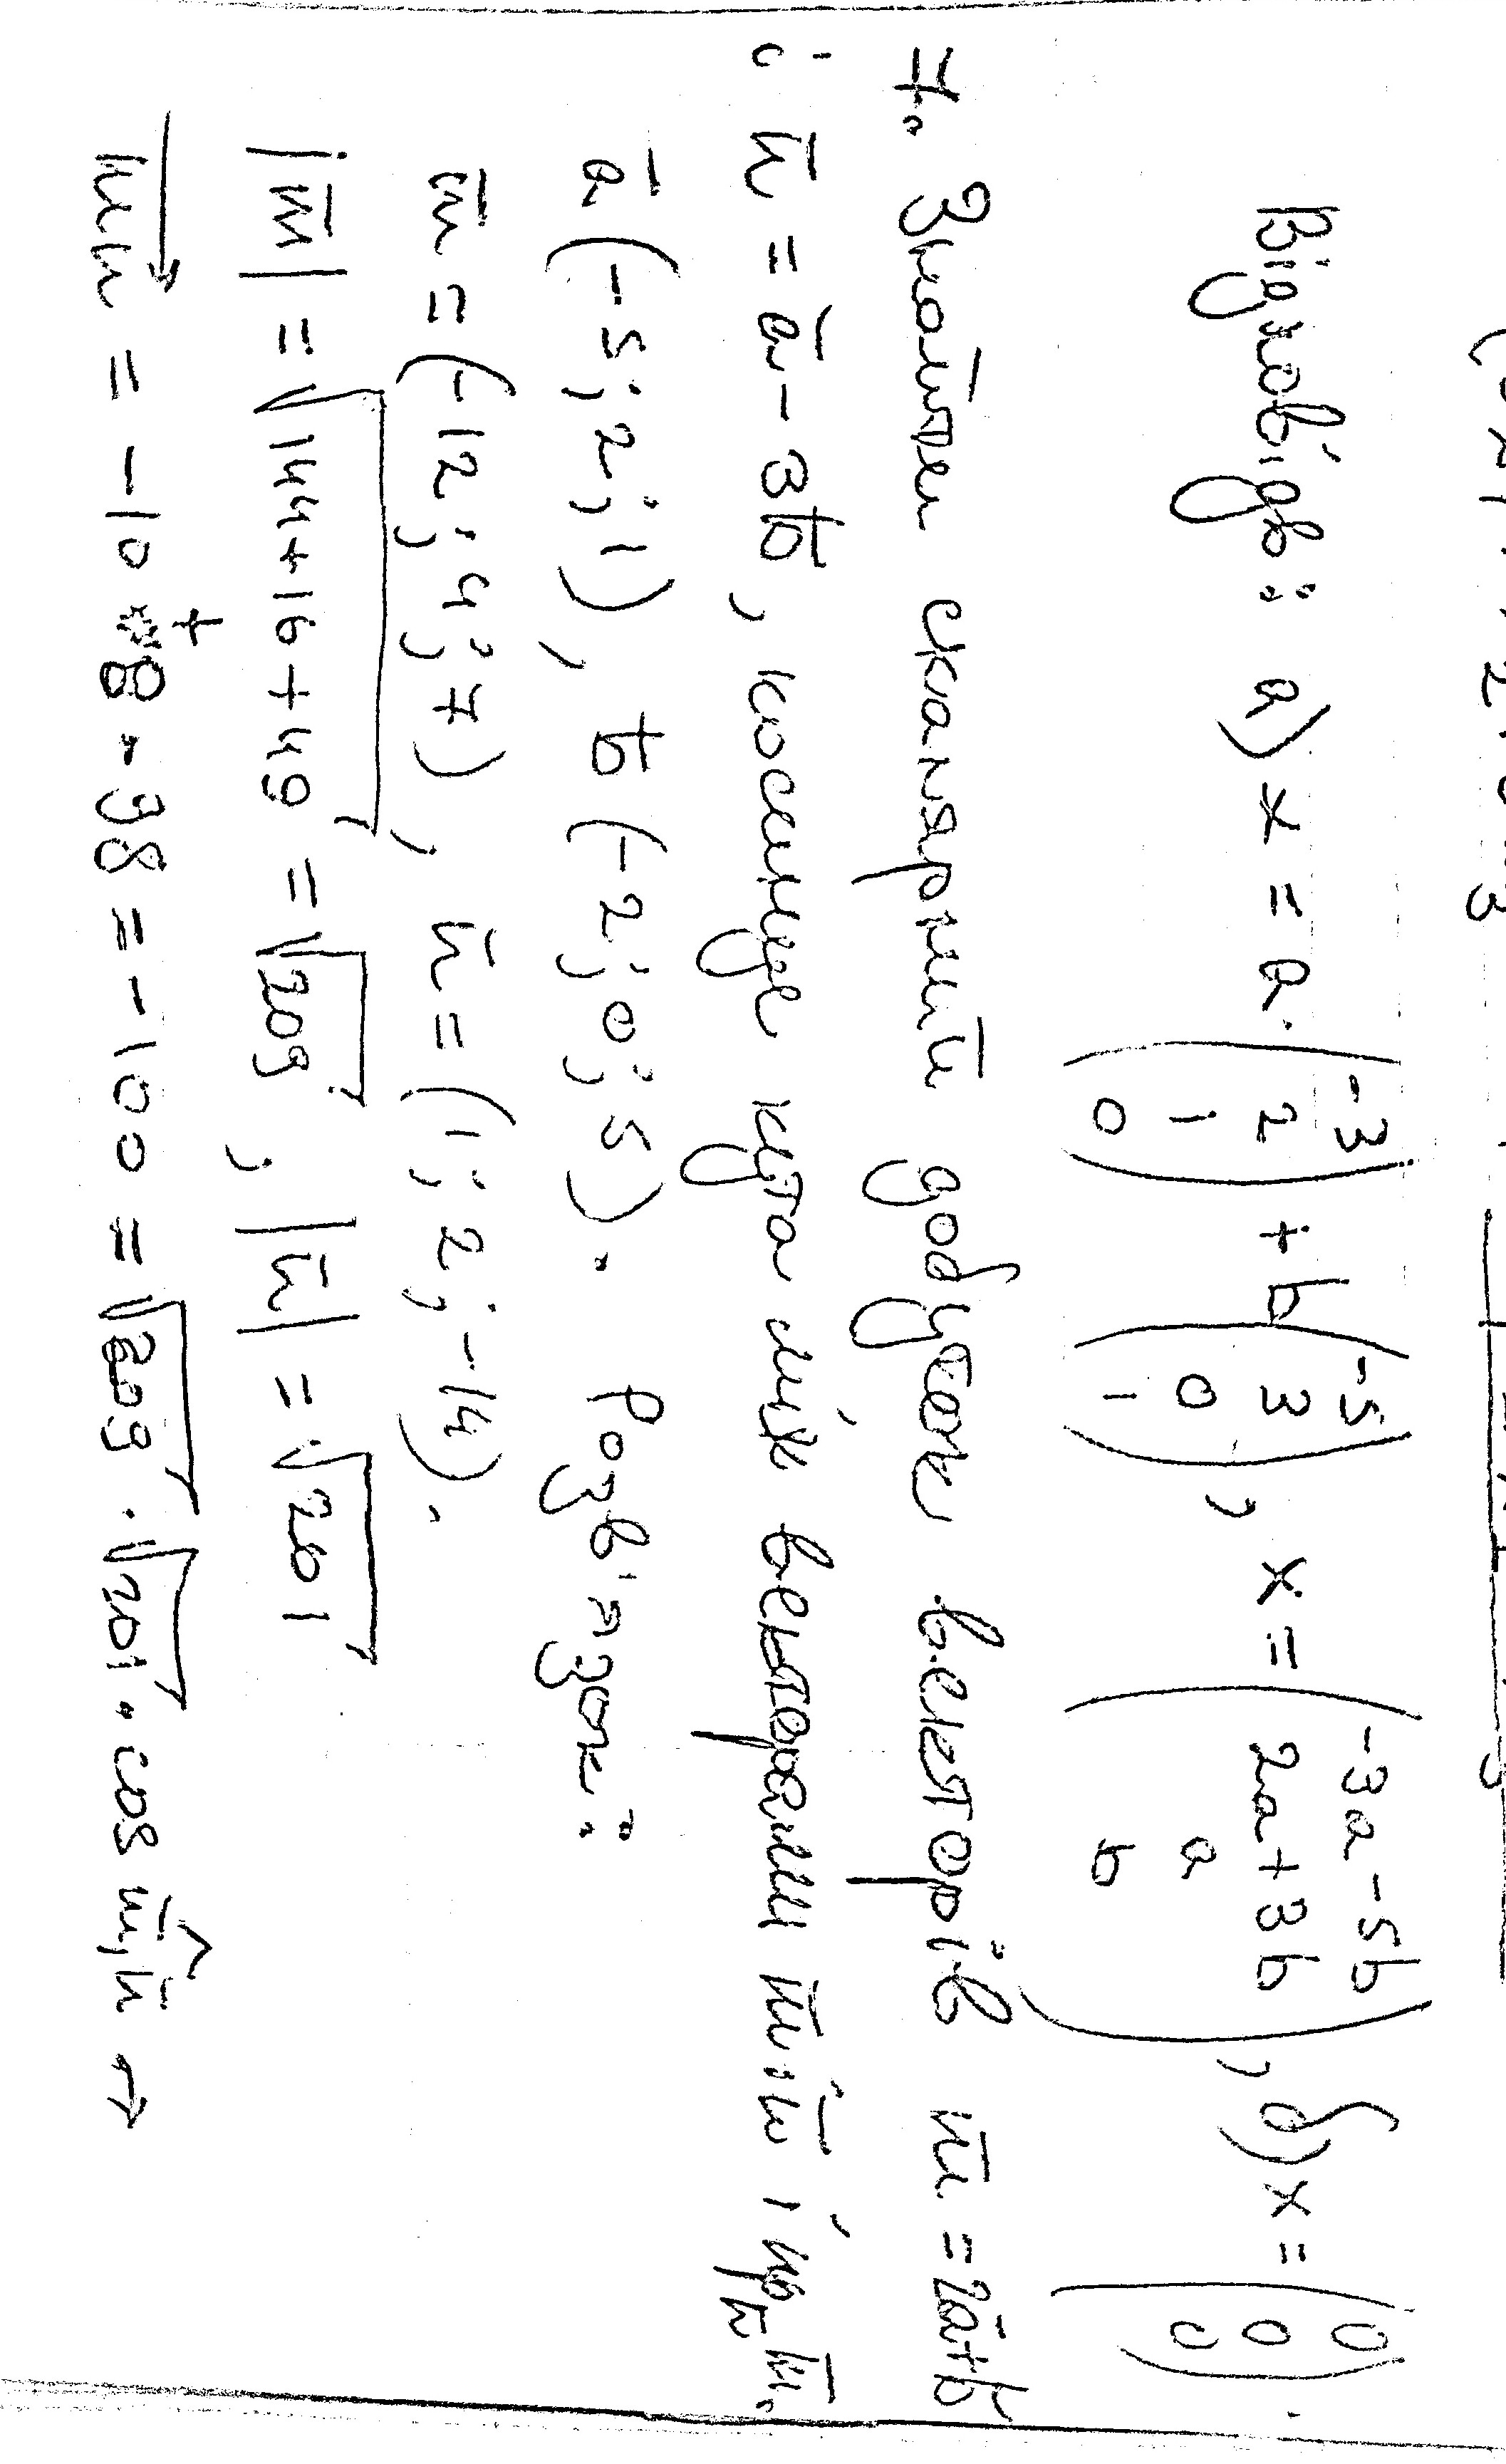 Відповідь: а) x = a·(-3 2 1 0) + b(-5 3 0 1), x = (-3a-5b 2a+3b a b), б) x = (0 0 0).
7. Знайти скалярний добуток векторів m̄ = 2ā+b̄
і n̄ = ā-3b̄, косинус кута між векторами m̄ і n̄ і пр n̄ m̄.
ā(-5; 2; 1), b̄(-2; 0; 5). Розв'язок:
m̄ = (-12; 4; 7), n̄ = (1; 2; -14).
|m̄| = √144+16+49 = √209, |n̄| = √201
m̄n̄ = -10 + 8 - 98 = -100 = √209 · √201 · cos m̄,n̄ →